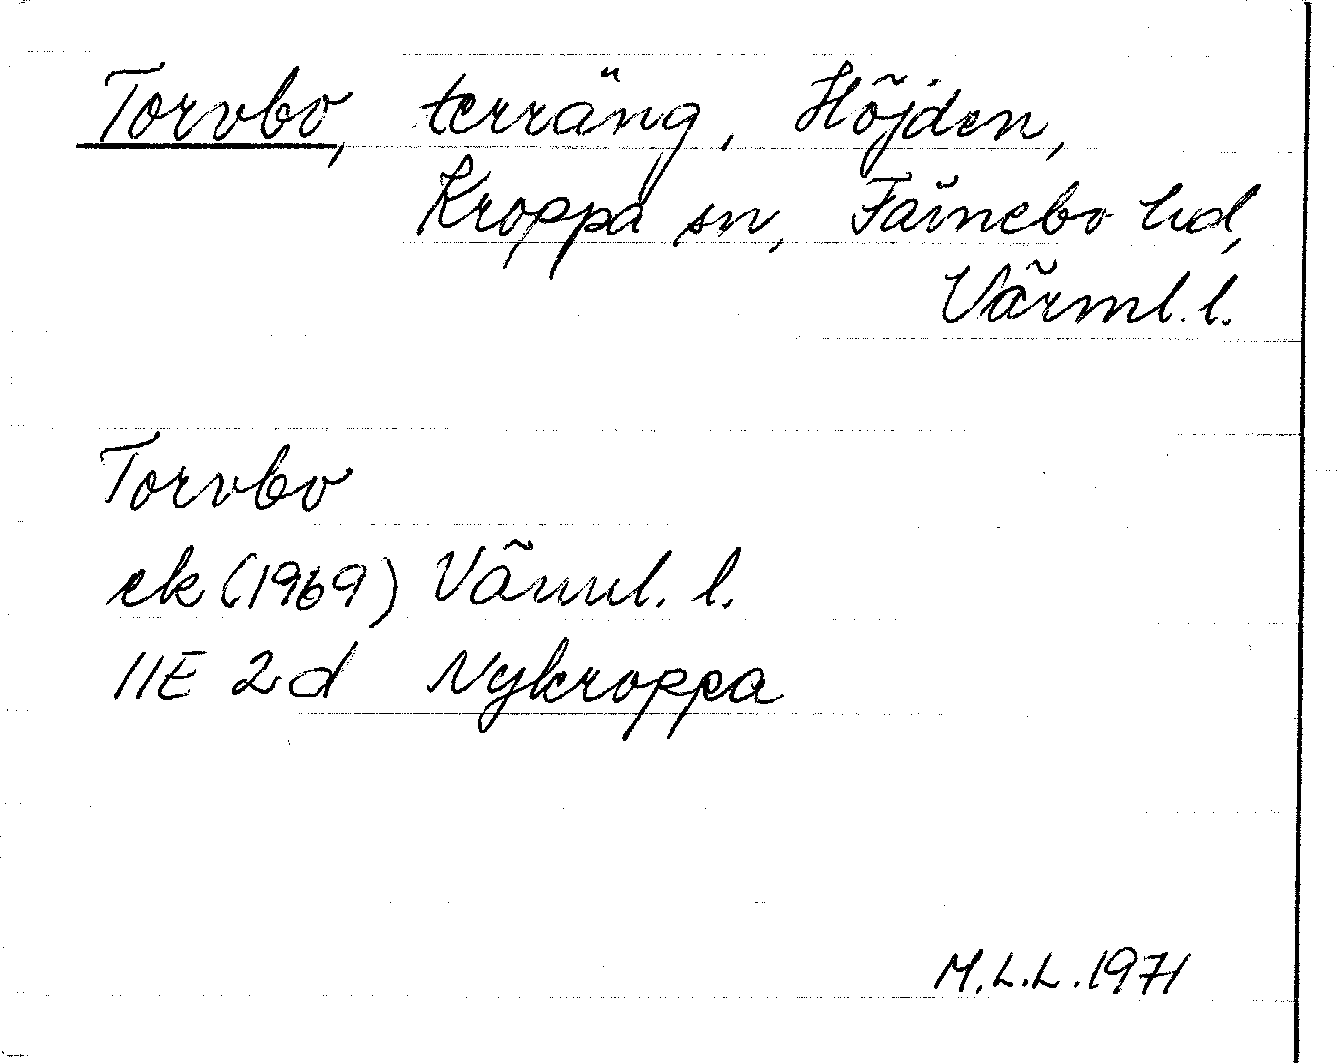 Torvbo, terräng, Höjden,
Kroppa sn, Färnebo hd,
Värml. l.
Torvbo
ek (1969) Värml. l.
11E 2d Nykroppa
M.L.L. 1971